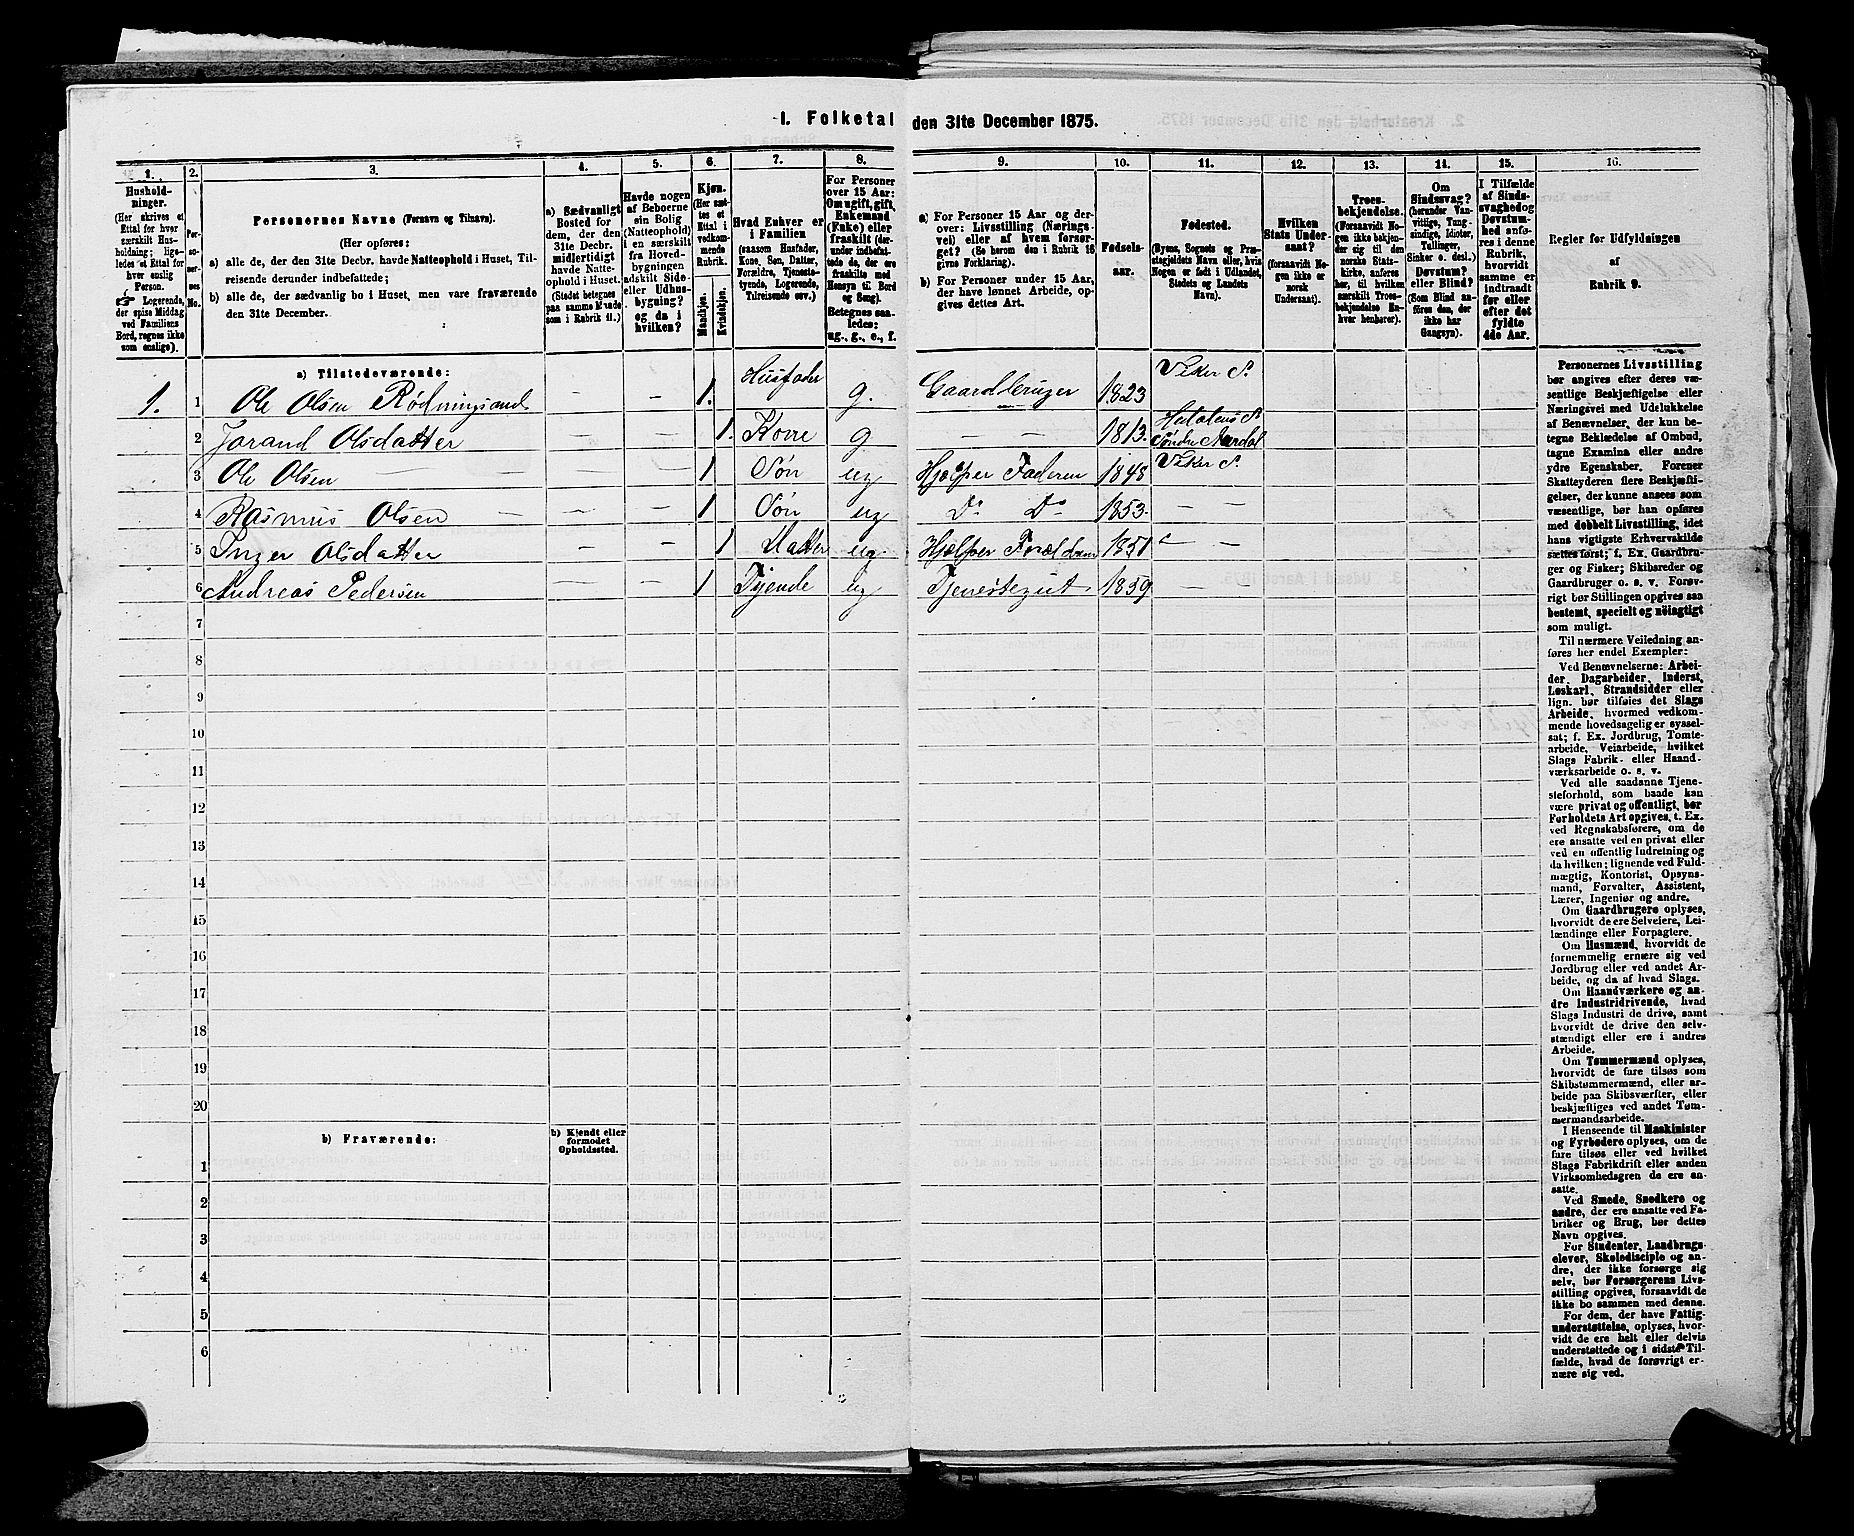 1. Folketal den 31te December 1875.
1. 2. 3. 4. 5. 6. 7. 8. 9. 10. 11. 12. 13. 14. 15. 16.
Hushold-
ninger.
(Her skrives et
Ettal for hver
særskilt Hus-
holdning; lige-
ledes et Ettal for
hver enslig
Person.
☞ Logerende,
der spise Middag
ved Familiens
Bord, regnes ikke
som enslige).
Per-
so-
ner-
nes
No.
Personernes Navne (Fornavn og Tilnavn).
(Her opføres:
a) alle de, der den 31te Decbr. havde Natteophold i Huset, Til-
reisende derunder indbefattede;
b) alle de, der sædvanlig bo i Huset, men vare fraværende
den 31te December.
a) Sædvanligt
Bosted for
dem, der den
31te Decbr.
midlertidigt
havde Natte-
ophold i Huset.
(Stedet betegnes
paa samme Maade
som i Rubrik 11.)
Havde nogen
af Beboerne
sin Bolig
(Natteophold)
i en særskilt
fra Hoved-
bygningen
adskilt Side-
eller Udhus-
bygning?
og da i
hvilken?
Kjøn.
(Her sæt-
tes et
Ettal i
vedkom-
mende
Rubrik.
Mandkjøn.
Kvindekjøn.
Hvad Enhver er
i Familien
(saasom Husfader,
Kone, Søn, Datter,
Forældre, Tjeneste-
tyende, Logerende,
Tilreisende osv.)
For Personer
over 15 Aar:
Om ugift, gift,
Enkemand
(Enke) eller
fraskilt (der-
under indbefat-
tede de, der ere
fraskilte med
Hensyn til Bord
og Seng).
Betegnes saa-
ledes:
ug., g., e., f.
a) For Personer 15 Aar og der-
over: Livsstilling (Nærings-
vei) eller af hvem forsør-
get? (Se herom den i Rubrik 16
givne Forklaring).
b) For Personer under 15 Aar,
der have lønnet Arbeide, op-
gives dettes Art.
Fødsels-
aar.
Fødested.
(Byens, Sognets og Præ-
stegjeldets Navn eller, hvis
Nogen er født i Udlandet,
Stedets og Landets
Navn).
Hvilken
Stats Under-
saat?
(forsaavidt No-
gen ikke er
norsk
Undersaat).
Troes-
bekjendelse.
(Forsaavidt No-
gen ikke bekjen-
der sig til den
norske Stats-
kirke, anføres
her, til hvilken
særskilt Troes-
bekjendelse En-
hver henhører).
Om
Sindssvag?
(herunder Van-
vittige, Tung-
sindige, Idioter,
Tullinger,
Sinker o. desl.)
Døvstum?
eller Blind?
(Som Blind an-
føres den, der
ikke har
Gangsyn).
I Tilfælde
af Sinds-
svaghed og
Døvstum-
hed anfø-
res i denne
Rubrik,
hvorvidt
samme er
indtraadt
før eller
efter det
fyldte
4de Aar.
Regler for Udfyldningen
af
Rubrik 9.
a) Tilstedeværende:
1. 1 Ole Olsen Rødningsand — — 1. Husfader g. Gaardbruger 1823 Viker S.
2 Jorand Olsdatter — — 1. Kone g — — 1813. Søndre Aardal
3 Ole Olsen — — 1 Søn ug Hjælper Faderen 1848 Viker S.
4 Rasmus Olsen — — 1 Søn ug Do Do 1853. — —
5 Inger Olsdatter — — 1 Datter ug. Hjælper Forældrene 1851 — —
6 Andreas Pedersen — — 1 Tyende ug Tjenestegut 1859 — —
7
8
9
10
11
12
13
14
15
16
17
18
19
20
b) Fraværende:
b) Kjendt eller
formodet
Opholdssted.
1
2
3
4
5
6
Personernes Livsstilling
bør angives efter deres væ-
sentlige Beskjæftigelse eller
Næringsvei med Udelukkelse
af Benævnelser, der kun be-
tegne Beklædelse af Ombud,
tagne Examina eller andre
ydre Egenskaber. Forener
Skatteyderen flere Beskjæfti-
gelser, der kunne ansees som
væsentlige, bør han opføres
med dobbelt Livsstilling, idet
hans vigtigste Erhvervskilde
sættes først; f. Ex. Gaardbru-
ger og Fisker; Skibsreder og
Gaardbruger o. s. v. Forøv-
rigt bør Stillingen opgives saa
bestemt, specielt og nøiagtigt
som muligt.
Til nærmere Veiledning an-
føres her endel Exempler:
Ved Benævnelserne: Arbei-
der, Dagarbeider, Inderst,
Løskarl, Strandsidder eller
lign. bør tilføies det Slags
Arbeide, hvormed vedkom-
mende hovedsagelig er syssel-
sat; f. Ex. Jordbrug, Tomte-
arbeide, Veiarbeide, hvilket
Slags Fabrik- eller Haand-
værksarbeide o. s. v.
Ved alle saadanne Tjene-
steforhold, som baade kan
være privat og offentligt, bør
Forholdets Art opgives, t. Ex.
ved Regnskabsførere, om de
ere ansatte ved en privat eller
ved en offentlig Indretning og
da hvilken; lignende ved Fuld-
mægtig, Kontorist, Opsyns-
mand, Forvalter, Assistent,
Lærer, Ingeniør og andre.
Om Gaardbrugere oplyses,
hvorvidt de ere Selveiere, Lei-
lændinge eller Forpagtere.
Om Husmænd, hvorvidt de
fornemmelig ernære sig ved
Jordbrug eller ved andet Ar-
beide, og da af hvad Slags.
Om Haandværkere og an-
dre Industridrivende, hvad
Slags Industri de drive, samt
hvorvidt de drive den selv-
stændigt eller ere i andres
Arbeide.
Om Tømmermænd oplyses,
hvorvidt de fare tilsøs som
Skibstømmermænd, eller ar-
beide paa Skibsværfter, eller
beskjæftiges ved andet Tøm-
mermandsarbeide.
I Henseende til Maskinister
og Fyrbødere oplyses, om de
fare tilsøs eller ved hvilket
Slags Fabrikdrift eller anden
Virksomhedsgren de ere an-
satte.
Ved Smede, Snedkere og
andre, der ere ansatte ved Fa-
briker og Brug, bør dettes
Navn opgives.
For Studenter, Landbrugs-
elever, Skoledisciple og an-
dre, der ikke forsørge sig
selv, bør Forsørgerens Livs-
stilling opgives, forsaavidt de
ikke bo sammen med denne.
For dem, der have Fattig-
understøttelse, oplyses, hvor-
vidt de ere helt eller delvis
understøttede og i sidste Til-
fælde, hvad de forøvrigt er-
nære sig ved.